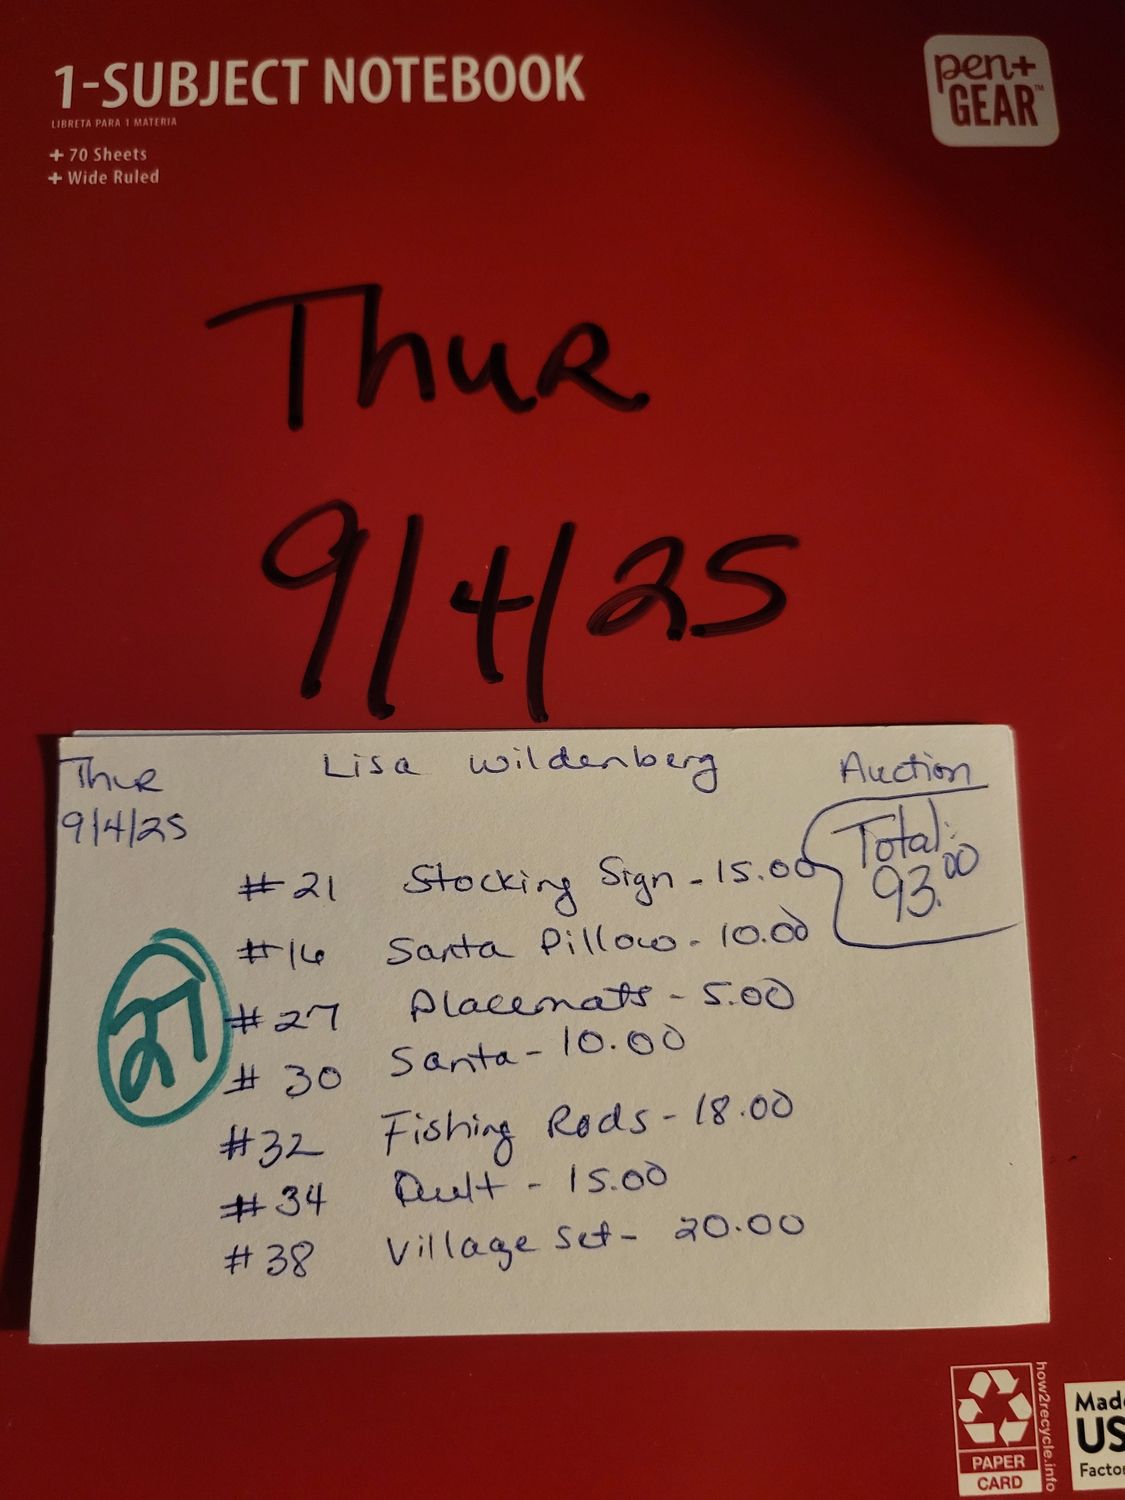 1-SUBJECT NOTEBOOK
LIBRETA PARA 1 MATERIA
+ 70 Sheets
+ Wide Ruled
pen+
GEAR™
Thur
9/4/25
Thur
9/4/25
Lisa Wildenberg
Auction
Total:
93.00
#21 Stocking Sign - 15.00
#16 Santa Pillow - 10.00
#27 Placemats - 5.00
#30 Santa - 10.00
#32 Fishing Rods - 18.00
#34 Quilt - 15.00
#38 Village Set - 20.00
27
PAPER
CARD
how2recycle.info
Made
US
Factor